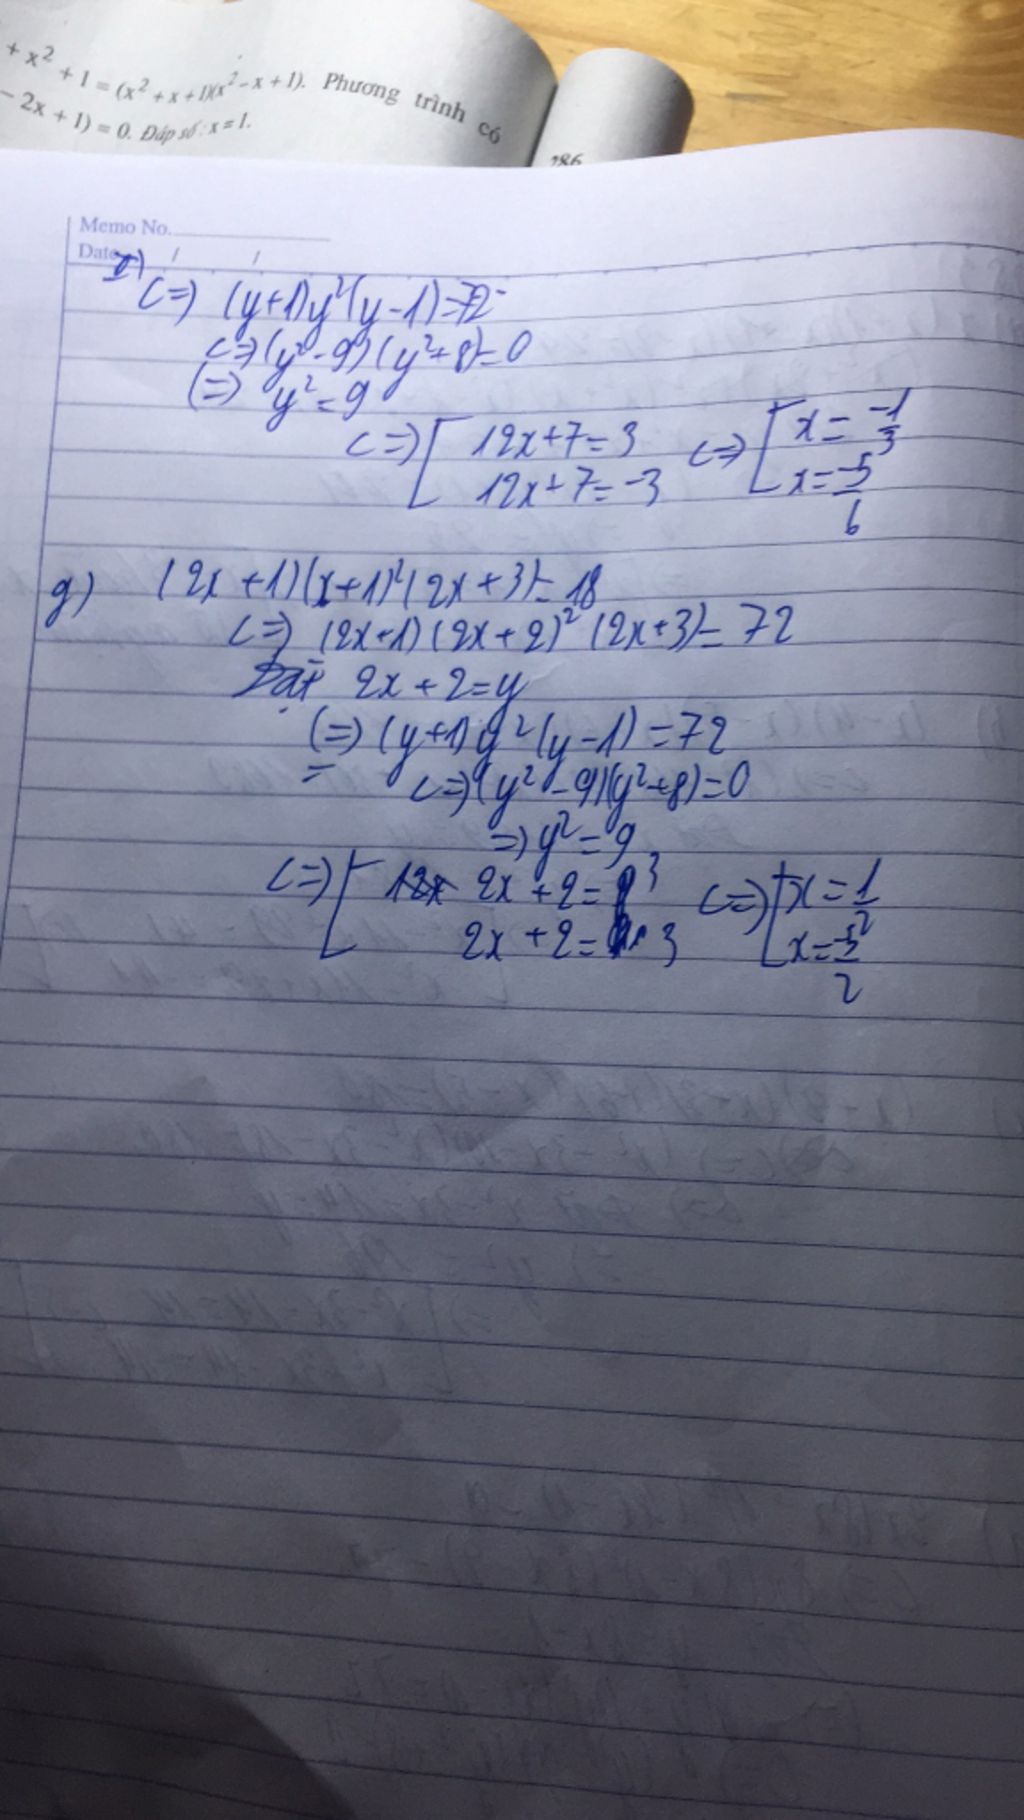 + x² + 1 = (x² + x + 1)(x² - x + 1). Phương trình có
- 2x + 1) = 0. Đáp số: x = 1.
286
Memo No.
Date / /
<=> (y+1)y²(y-1)=72
<=> (y²-9)(y²+8)=0
<=> y²=9
<=> [ 12x+7=3 <=> [ x=-1/3
12x+7=-3 x=-5/6
g) (2x+1)(x+1)²(2x+3)=18
<=> (2x+1)(2x+2)²(2x+3)=72
Đặt 2x+2=y
<=> (y+1)y²(y-1)=72
<=> (y²-9)(y²+8)=0
=> y²=9
<=> [ 2x+2=3 <=> [ x=1/2
2x+2=-3 x=-5/2